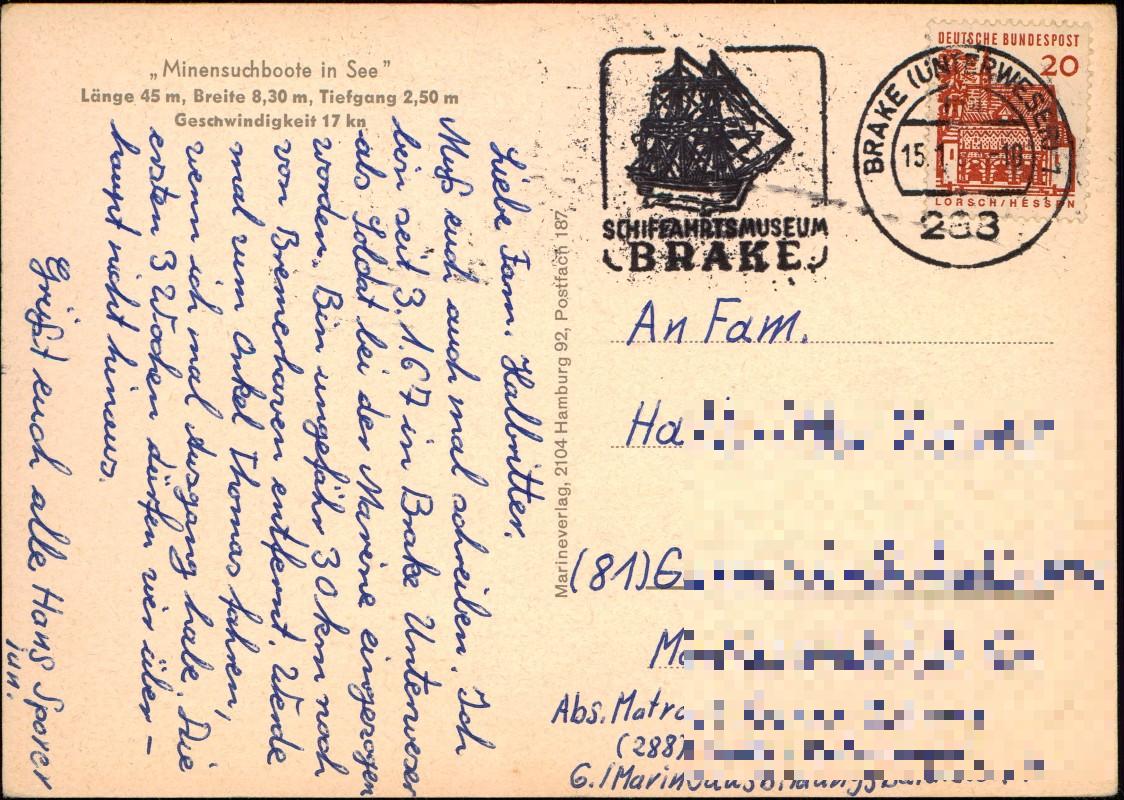 „Minensuchboote in See”
Länge 45 m, Breite 8,30 m, Tiefgang 2,50 m
Geschwindigkeit 17 kn
Liebe Fam. Halbritter.
Muß euch auch mal schreiben. Ich
bin seit 3.1.67 in Brake Unterweser
als Soldat bei der Marine eingezogen
worden. Bin ungefähr 30 km noch
von Bremerhaven entfernt. Werde
mal zum Onkel Thomas fahren,
wenn ich mal Ausgang habe. Die
ersten 3 Wochen dürfen wir über-
haupt nicht hinaus.
Grüßt euch alle Hans Sporer
jun.
Marineverlag, 2104 Hamburg 92, Postfach 187
SCHIFFAHRTSMUSEUM
BRAKE
BRAKE (UNTERWESER) 1
15.
283
DEUTSCHE BUNDESPOST
20
LORSCH/HESSEN
An Fam.
Ha
(81) G
M
Abs. Matro
(288
G./Marin